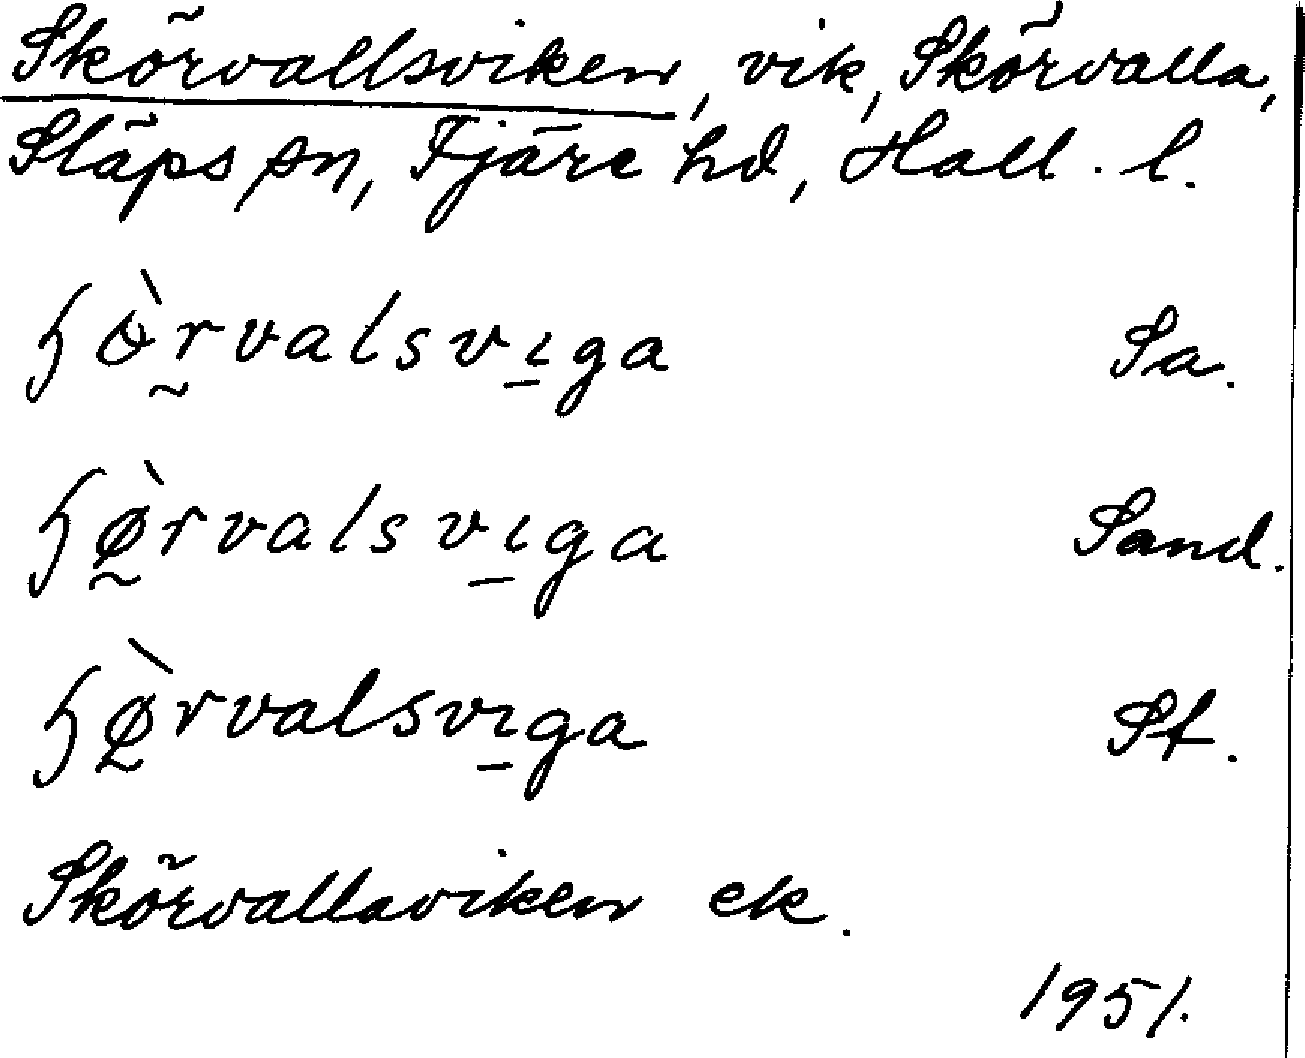 Skörvallsviken, vik, Skörvalla,
Släps sn, Fjäre hd, Hall. l.
ʃɞ̀r̰valsvı̠ga Sa.
ʃø̰̀rvalsvı̠ga Sand.
ʃø̰̀rvalsvı̠ga St.
Skörvallaviken ek.
1951.